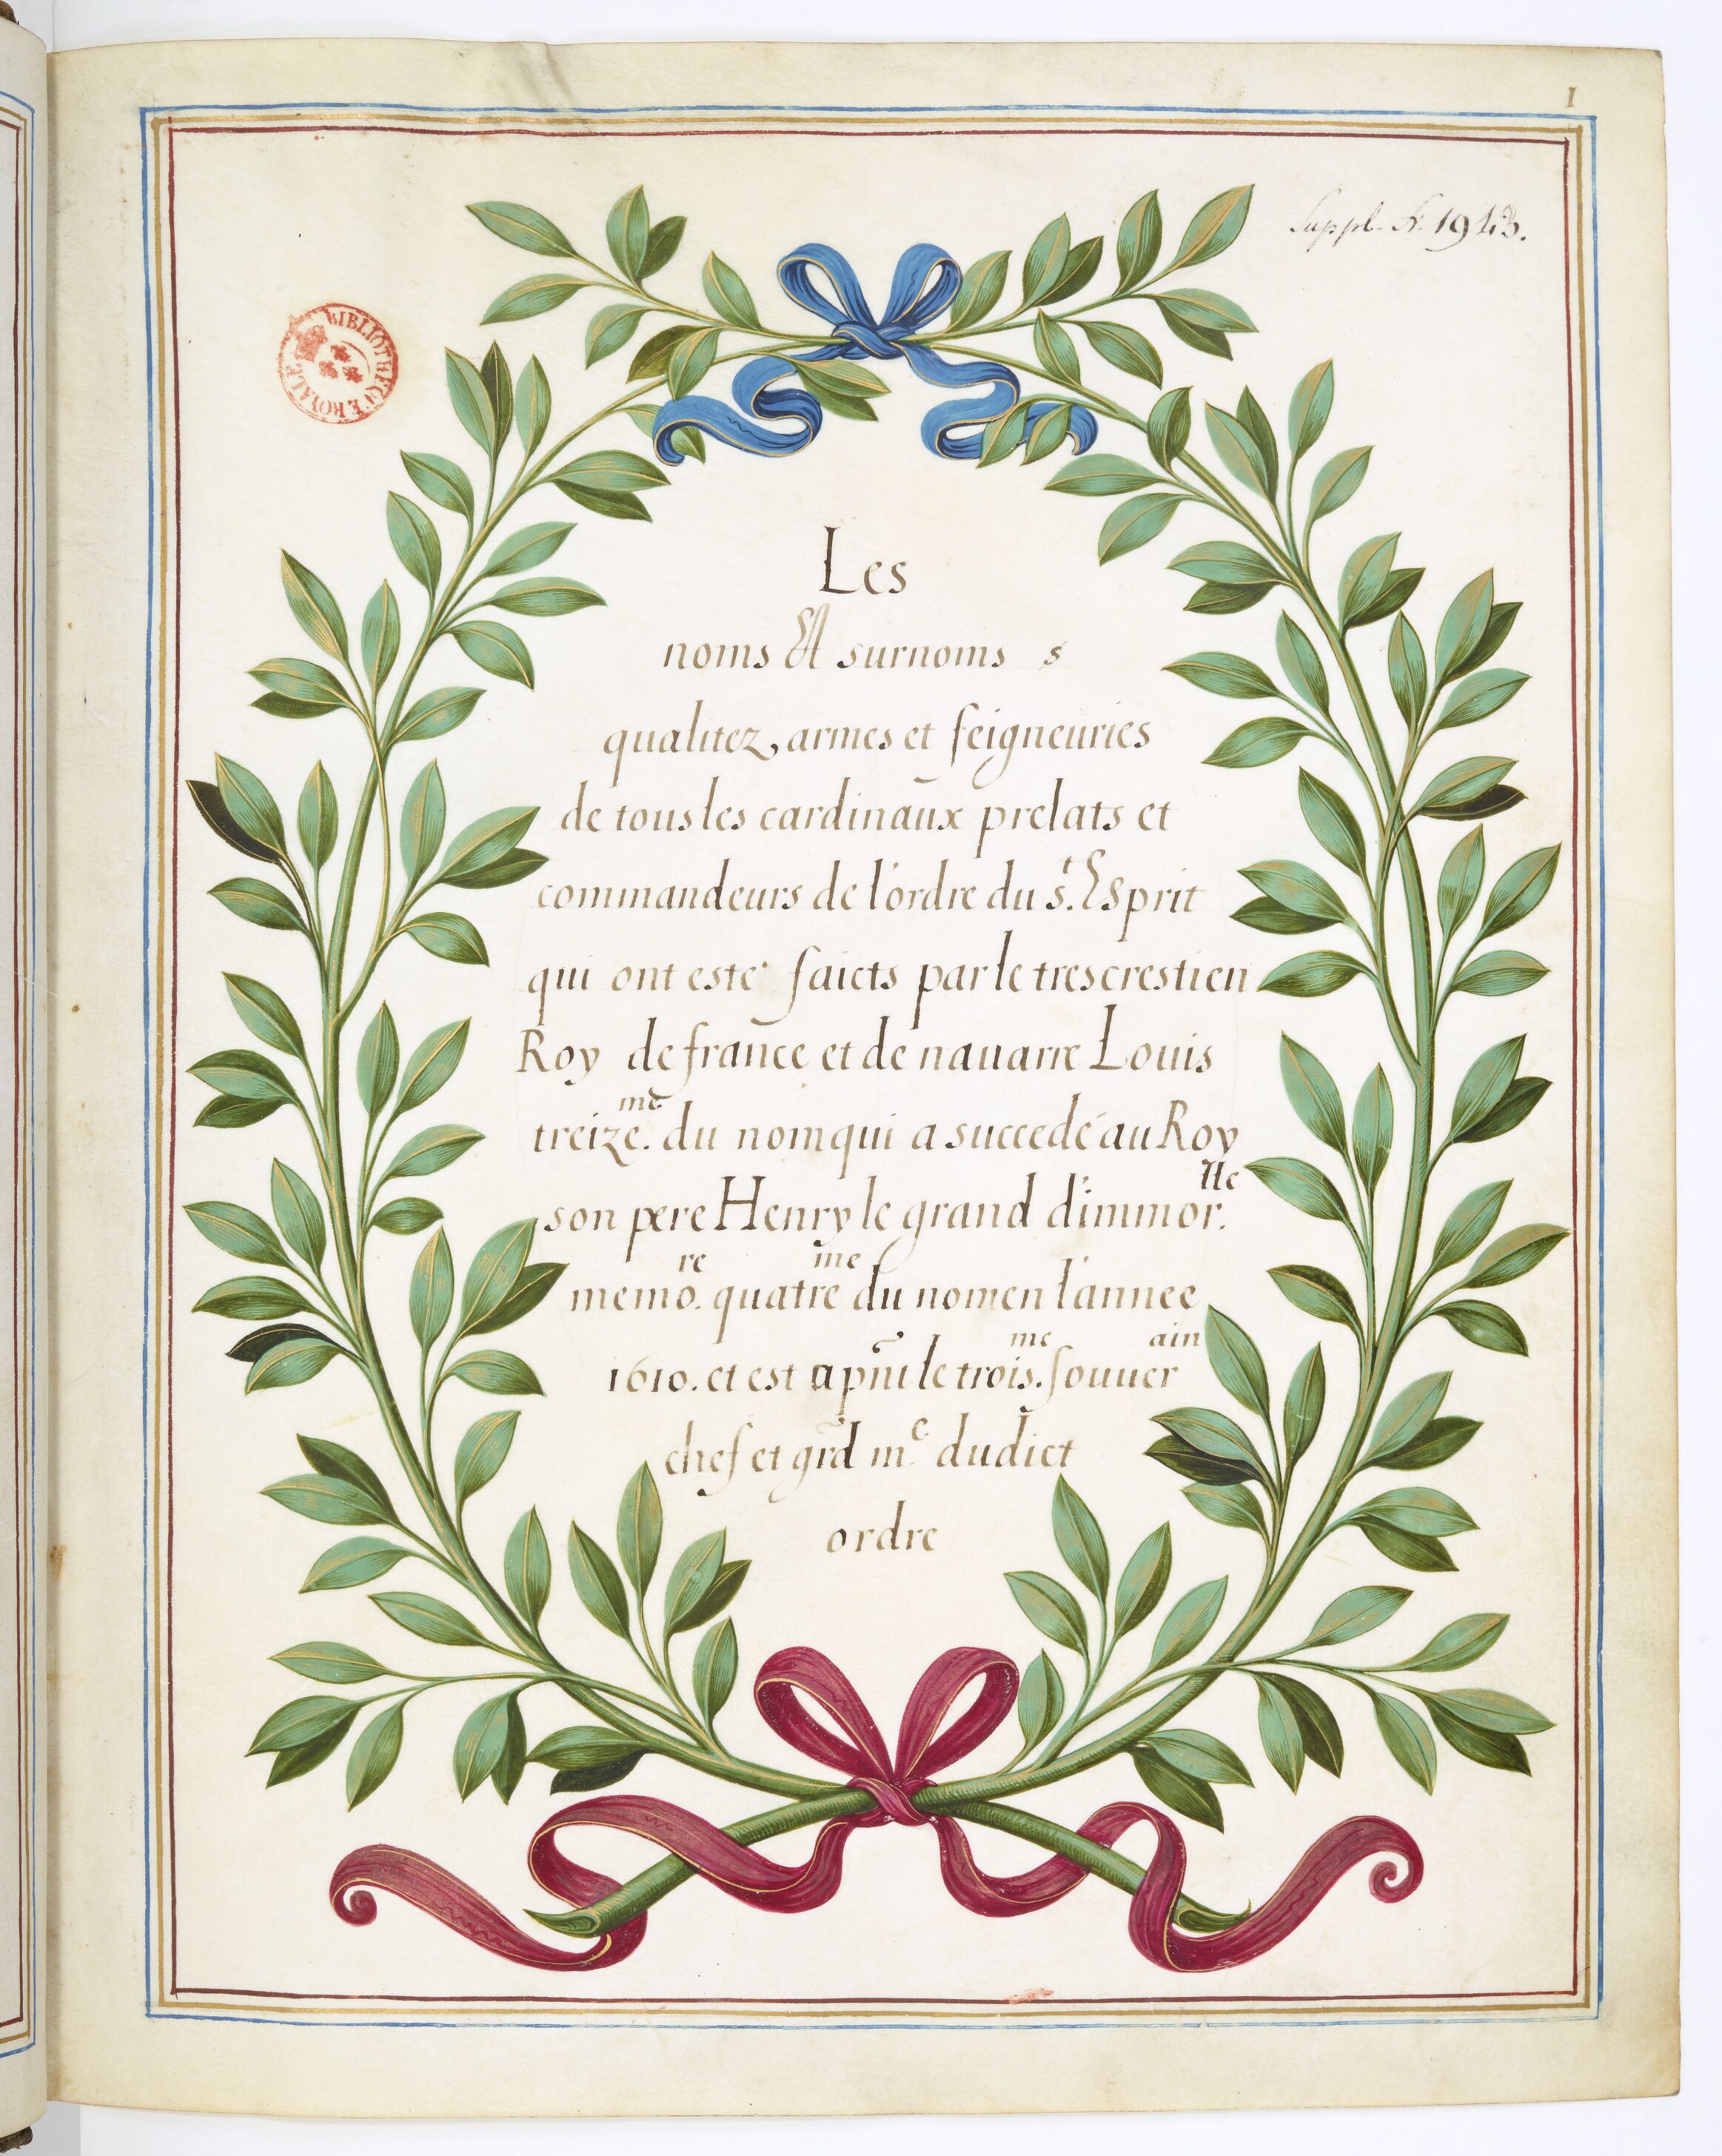 1
Suppl. fr. 1943.
BIBLIOTHEQUE ROYALE
Les
noms Et surnoms s
qualitez, armes et seigneuries
de tous les cardinaux prelats et
commandeurs de l'ordre du s.t Esprit
qui ont esté faicts par le trescrestien
Roy de france et de nauarre Louis
treize.me du nom qui a succedé au Roy
son pere Henry le grand d'immor.lle
memo.re quatre me du nom en l'annee
1610. et est apñt le trois.me souuerain
chef et grãd m.e dudict
ordre